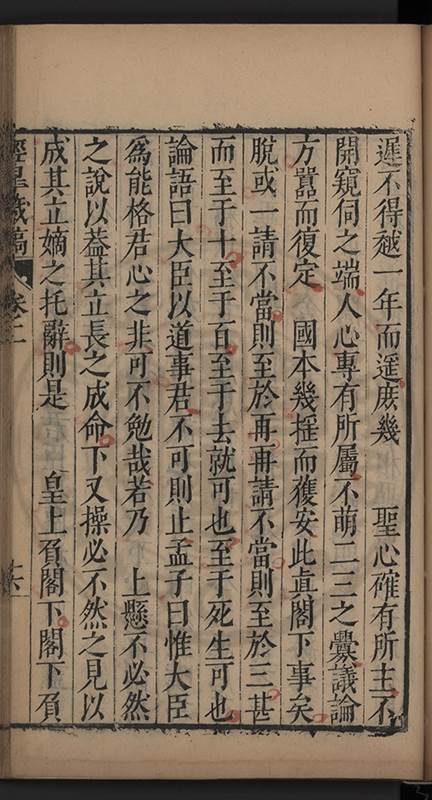 遲不得越一年而遥庻幾　聖心確有所主不
開窺伺之端人心專有所屬不萌二三之釁議論
方囂而復定　國本幾揺而獲安此眞閣下事矣
脫或一請不當則至於再再請不當則至於三甚
而至于十至于百至于去就可也至于死生可也
論語曰大臣以道事君不可則止孟子曰惟大臣
爲能格君心之非可不勉哉若乃　上懸不必然
之說以葢其立長之成命下又操必不然之見以
成其立嫡之托辭則是　皇上負閣下閣下負
經皐藏稿　卷二　十六